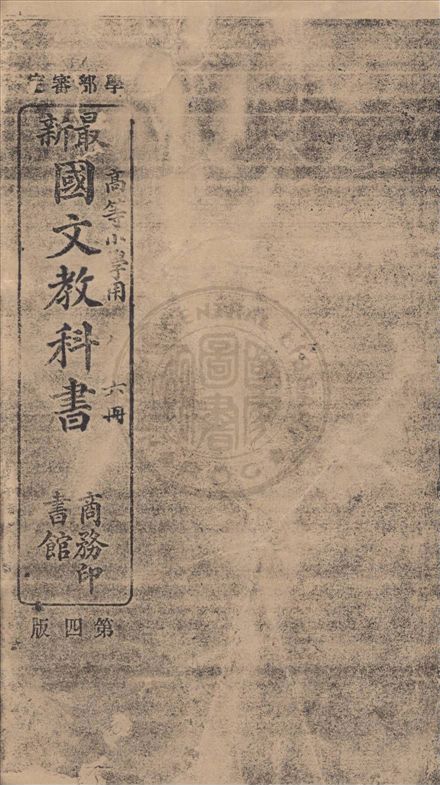 學部審定
最新
國文教科書
高等小學用
六冊
商務印
書館
第四版
國家
圖書
CENTRAL